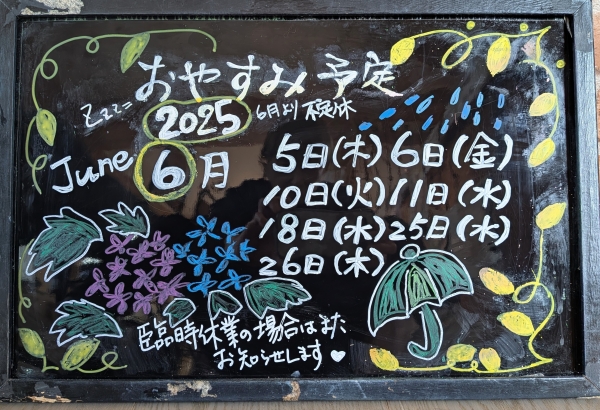 おやすみ予定
Zzzz
2025 6月より 不定休
June 6月
5日(木) 6日(金)
10日(火) 11日(水)
18日(水) 25日(水)
26日(木)
臨時休業の場合はまた
お知らせします♥